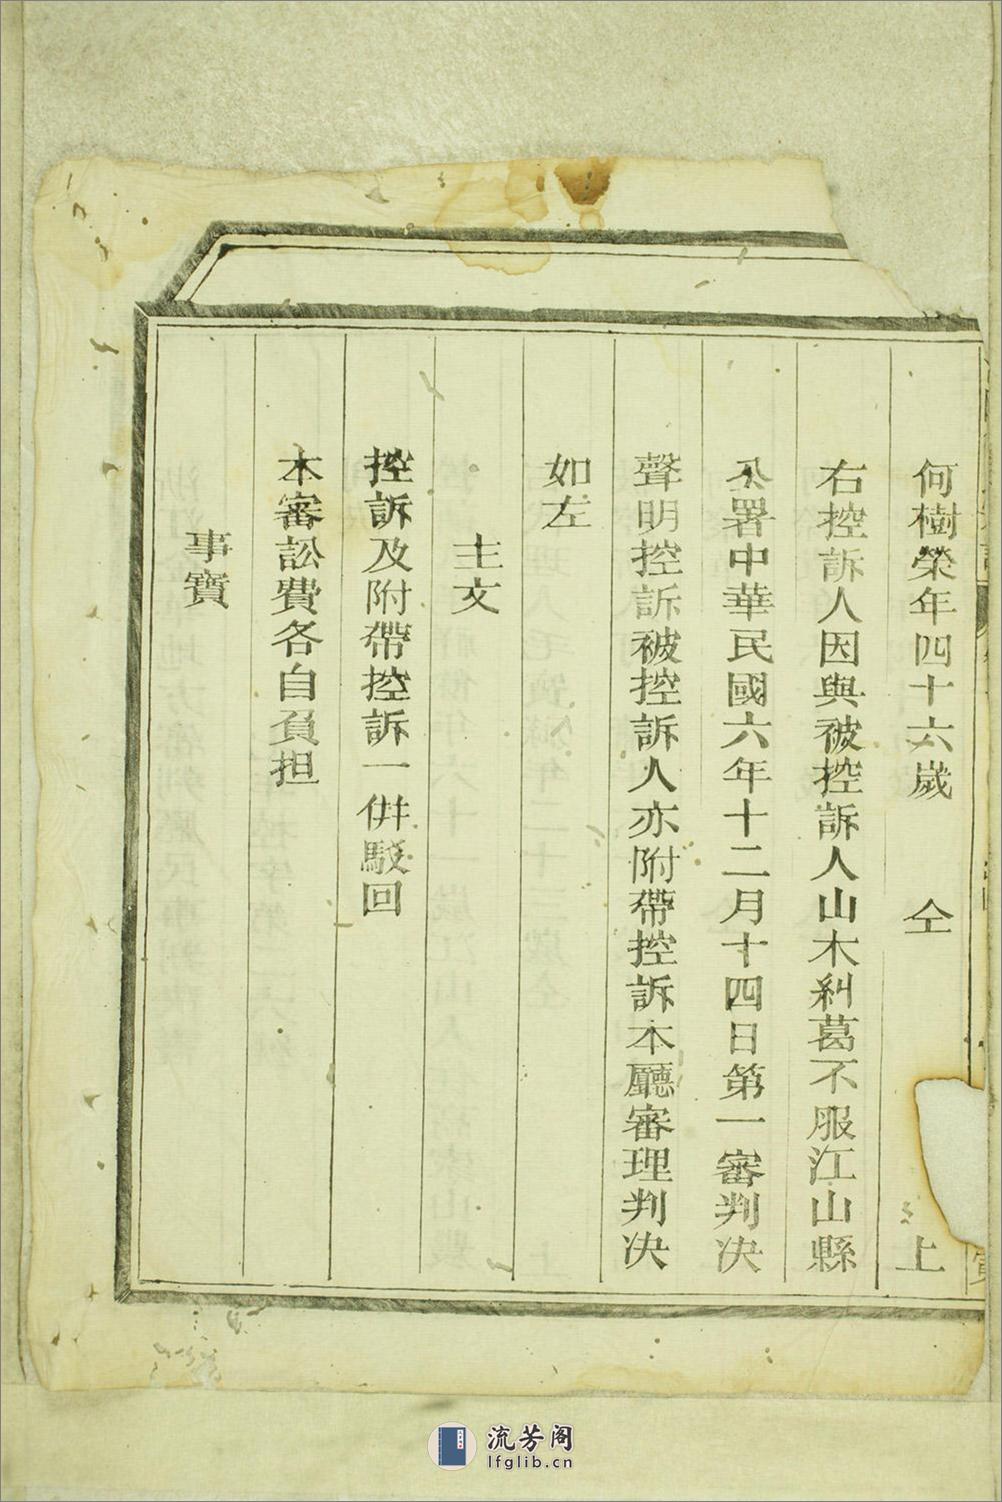 何樹榮年四十六歲 仝 上
右控訴人因與被控訴人山木糾葛不服江山縣
公署中華民國六年十二月十四日第一審判決
聲明控訴被控訴人亦附帶控訴本廳審理判決
如左
主文
控訴及附帶控訴一併駁回
本審訟費各自負担
事實
流芳阁
lfglib.cn